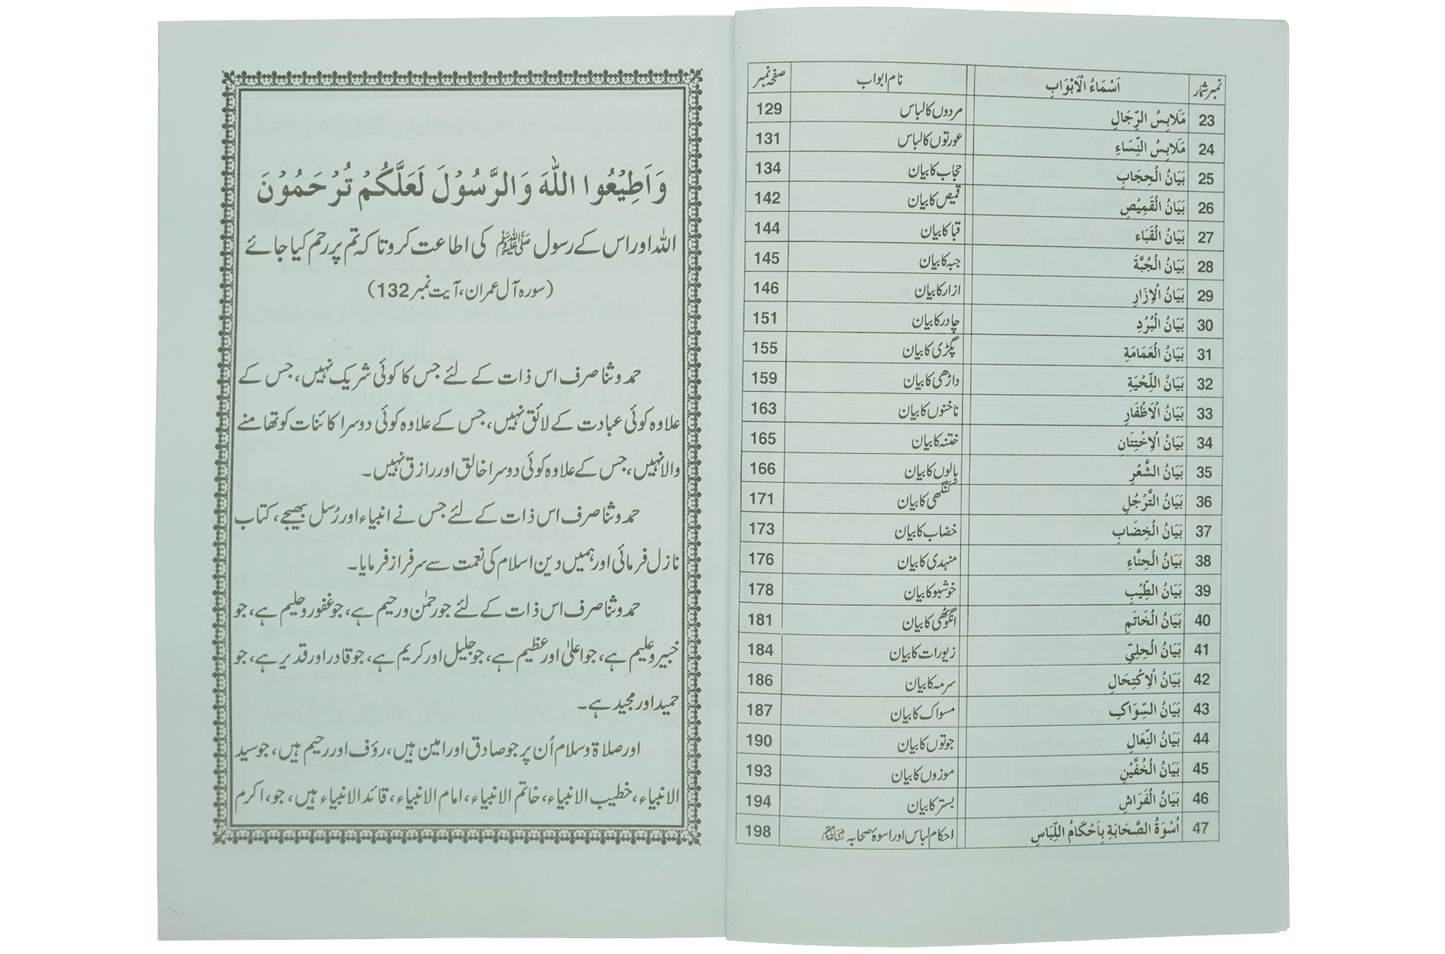 نمبر شمار اَسْمَاءُ الْاَبْوَابِ نام ابواب صفحہ نمبر
23 مَلَابِسُ الرِّجَالِ مردوں کا لباس 129
24 مَلَابِسُ النِّسَاءِ عورتوں کا لباس 131
25 بَیَانُ الْحِجَابِ حجاب کا بیان 134
26 بَیَانُ الْقَمِیْصِ قمیص کا بیان 142
27 بَیَانُ الْقَبَاء قبا کا بیان 144
28 بَیَانُ الْجُبَّةَ جبہ کا بیان 145
29 بَیَانُ الْاِزَارِ ازار کا بیان 146
30 بَیَانُ الْبُرُدِ چادر کا بیان 151
31 بَیَانُ الْعَمَامَةِ پگڑی کا بیان 155
32 بَیَانُ اللِّحْیَةِ داڑھی کا بیان 159
33 بَیَانُ الْاَظْفَارِ ناخنوں کا بیان 163
34 بَیَانُ الْاِخْتِتَان ختنہ کا بیان 165
35 بَیَانُ الشَّعْرِ بالوں کا بیان 166
36 بَیَانُ التَّرْجُلِ کنگھی کا بیان 171
37 بَیَانُ الْخِضَابِ خضاب کا بیان 173
38 بَیَانُ الْحِنَّاءِ منہدی کا بیان 176
39 بَیَانُ الطِّیْبِ خوشبو کا بیان 178
40 بَیَانُ الْخَاتَمِ انگوٹھی کا بیان 181
41 بَیَانُ الْحِلِیِّ زیورات کا بیان 184
42 بَیَانُ الْاِکْتِحَالِ سرمہ کا بیان 186
43 بَیَانُ السِّوَاکِ مسواک کا بیان 187
44 بَیَانُ النِّعَالِ جوتوں کا بیان 190
45 بَیَانُ الْخُفَّیْنِ موزوں کا بیان 193
46 بَیَانُ الْفَرَاشِ بستر کا بیان 194
47 اُسْوَةُ الصَّحَابَةِ بِاَحْکَامُ اللِّبَاسِ احکام لباس اور اسوۂ صحابہ 198
وَاَطِیْعُوا اللّٰهَ وَالرَّسُوْلَ لَعَلَّکُمْ تُرْحَمُوْنَ
اللہ اور اس کے رسول ﷺ کی اطاعت کرو تا کہ تم پر رحم کیا جائے
(سورہ آل عمران، آیت نمبر 132)
حمد و ثنا صرف اس ذات کے لئے جس کا کوئی شریک نہیں، جس کے
علاوہ کوئی عبادت کے لائق نہیں، جس کے علاوہ کوئی دوسرا کائنات کو تھامنے
والا نہیں، جس کے علاوہ کوئی دوسرا خالق اور رازق نہیں۔
حمد و ثنا صرف اس ذات کے لئے جس نے انبیاء اور رُسل بھیجے، کتاب
نازل فرمائی اور ہمیں دین اسلام کی نعمت سے سرفراز فرمایا۔
حمد و ثنا صرف اس ذات کے لئے جو رحمٰن و رحیم ہے، جو غفور و حلیم ہے، جو
خبیر و علیم ہے، جو اعلیٰ اور عظیم ہے، جو جلیل اور کریم ہے، جو قادر اور قدیر ہے، جو
حمید اور مجید ہے۔
اور صلاۃ و سلام اُن پر جو صادق اور امین ہیں، رؤف اور رحیم ہیں، جو سید
الانبیاء، خطیب الانبیاء، خاتم الانبیاء، امام الانبیاء، قائد الانبیاء ہیں، جو، اکرم